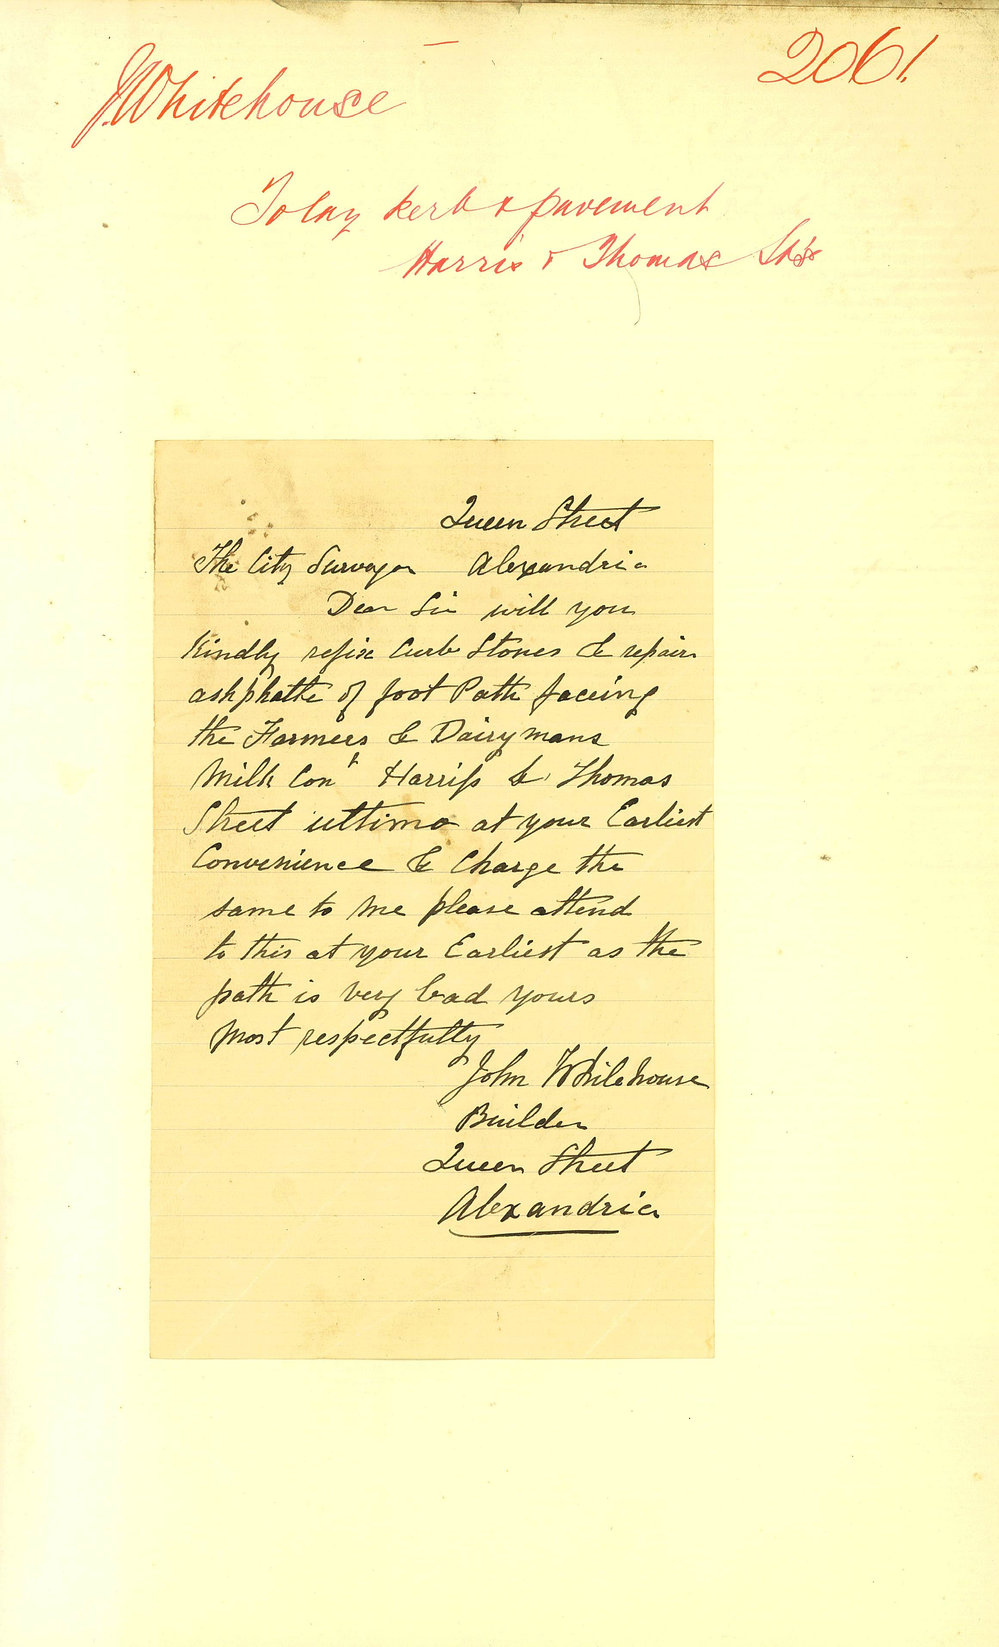 2061.
J. Whitehouse
To lay kerb & pavement
Harris & Thomas Sts
Queen Street
The City Surveyor Alexandria
Dear Sir will you
Kindly refix Curb Stones & repair
ashphalte of foot Path faceing
the Farmers & Dairymans
Milk Cont Harriss & Thomas
Street ultimo at your Earliest
Convenience & Charge the
same to me please attend
to this at your Earliest as the
path is very bad yours
most respectfully
John Whitehouse
Builder
Queen Street
Alexandria